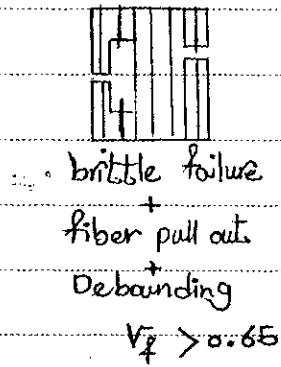 brittle failure
+
fiber pull out.
+
Debounding
V_f > 0.65